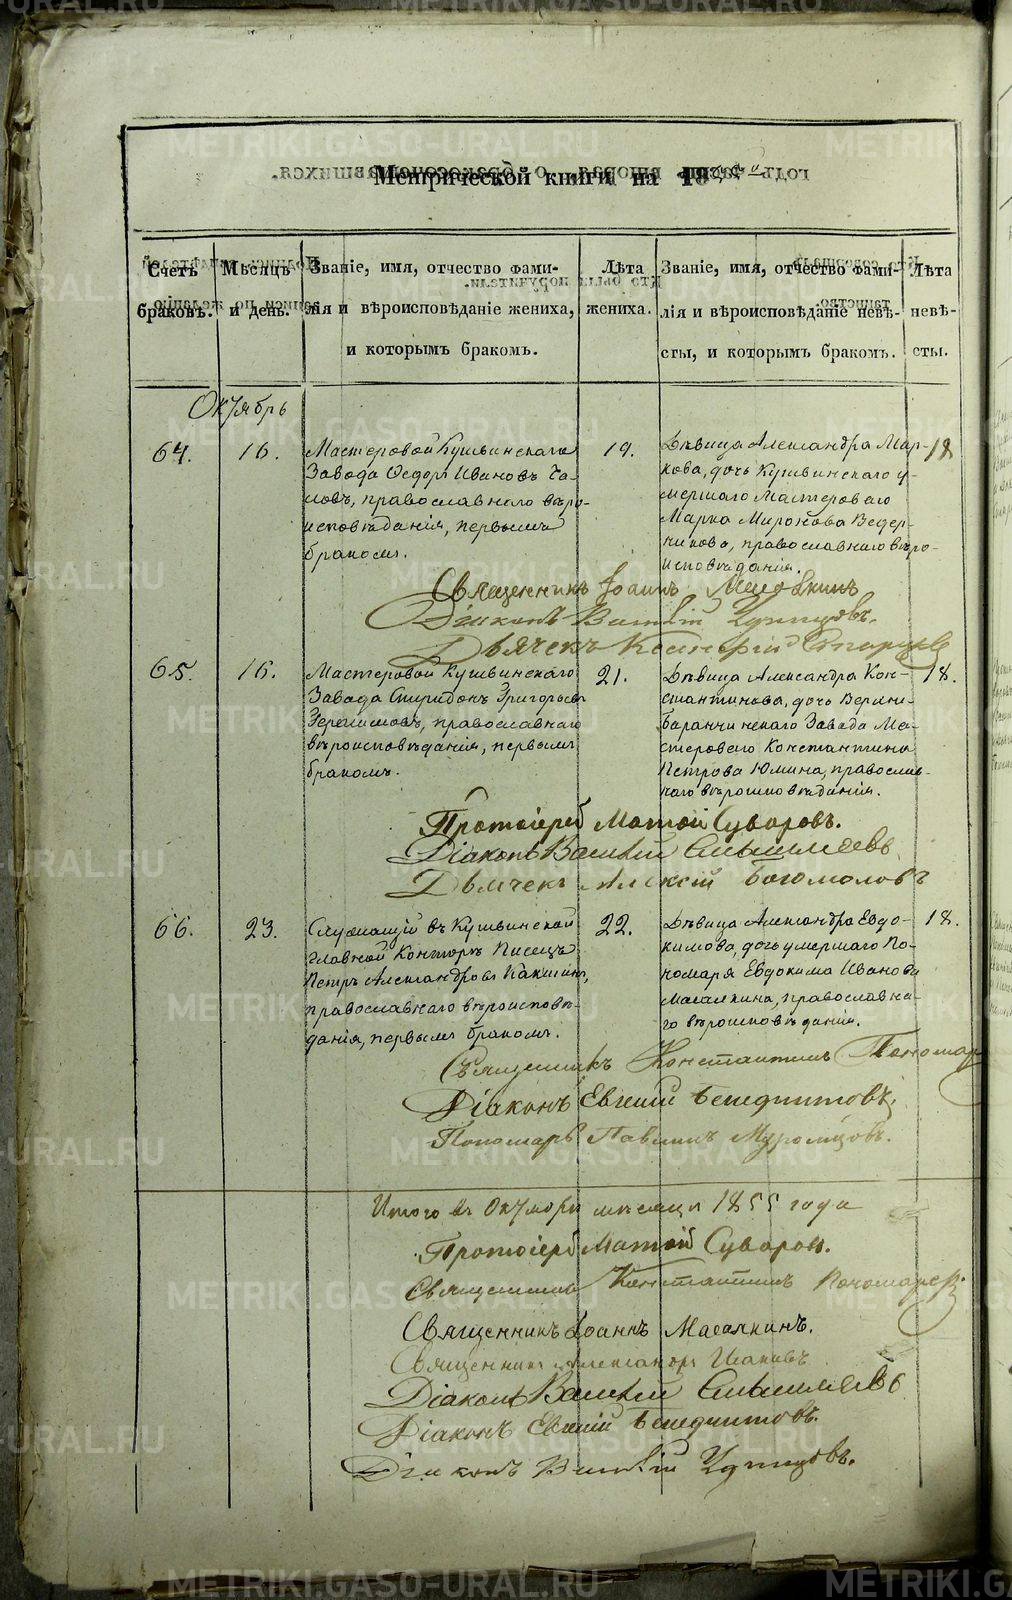 Метрической книги на 1855
Счетъ браковъ.
Мѣсяцъ и день.
Званіе, имя, отчество фами-
лія и вѣроисповѣданіе жениха,
и которымъ бракомъ.
Лѣта жениха.
Званіе, имя, отчество фами-
лія и вѣроисповѣданіе невѣ-
сты, и которымъ бракомъ.
Лѣта невѣ-
сты.
Октябрь
64.
16.
Мастеровой Кушвинскаго
Завода Ѳедоръ Ивановъ
православнаго вѣро-
исповѣданія, первымъ
бракомъ.
19.
Дѣвица Александра Мар-
кова, дочь Кушвинскаго у-
мершаго Мастероваго
Марка Миронова Ведер-
никова, православнаго вѣро-
исповѣданія.
18
Священникъ Іоаннъ Магалкинъ
Діаконъ Василій
Дьячекъ
65.
16.
Мастеровой Кушвинскаго
Завода Спиридонъ Григорьевъ
православнаго
вѣроисповѣданія, первымъ
бракомъ.
21.
Дѣвица Александра Кон-
стантинова, дочь Верхне-
Баранчинскаго Завода Ма-
стероваго Константина
Петрова Юмина, православ-
наго вѣроисповѣданія.
18.
Протоіерей Матѳій Суворовъ.
Діаконъ Василій
Дьячекъ Алексій Богомоловъ
66.
23.
Служащій въ Кушвинской
главной Конторѣ Писецъ
Петръ Александровъ
православнаго вѣроисповѣ-
данія, первымъ бракомъ.
22.
Дѣвица Александра Евдо-
кимова, дочь умершаго По-
номаря Евдокима Иванова
Магалкина, православна-
го вѣроисповѣданія.
18.
Священникъ Константинъ Пономар
Діаконъ Евгеній Бенедиктовъ.
Пономарь Павлинъ Муромцовъ.
Итого въ Октябрѣ мѣсяцѣ 1855 года
Протоіерей Матѳій Суворовъ.
Священникъ Константинъ Пономаревъ
Священникъ Іоаннъ Магалкинъ.
Священникъ Александръ
Діаконъ Василій
Діаконъ Евгеній Бенедиктовъ.
Діаконъ Василій
METRIKI.GASO-URAL.RU